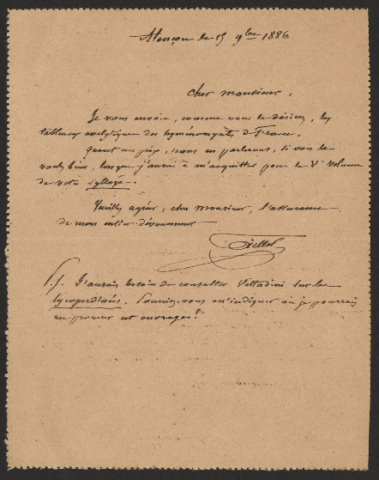 Alençon le 15 9bre 1886
Cher monsieur,
Je vous envoie, comme vous le désirez, les
tableaux analytiques des hyménomycètes de France.
quant au prix, nous en parlerons, si vous le
voulez bien, lorsque j'aurai à m'acquitter pour le Ve volume
de votre Sylloge.
Veuillez agréer, cher monsieur, l'assurance
de mon entier dévouement
Gillet
P.S. J'aurais besoin de consulter Vittadini sur les
lycoperdinés. Pourriez-vous m'indiquer où je pourrais
me procurer cet ouvrage?